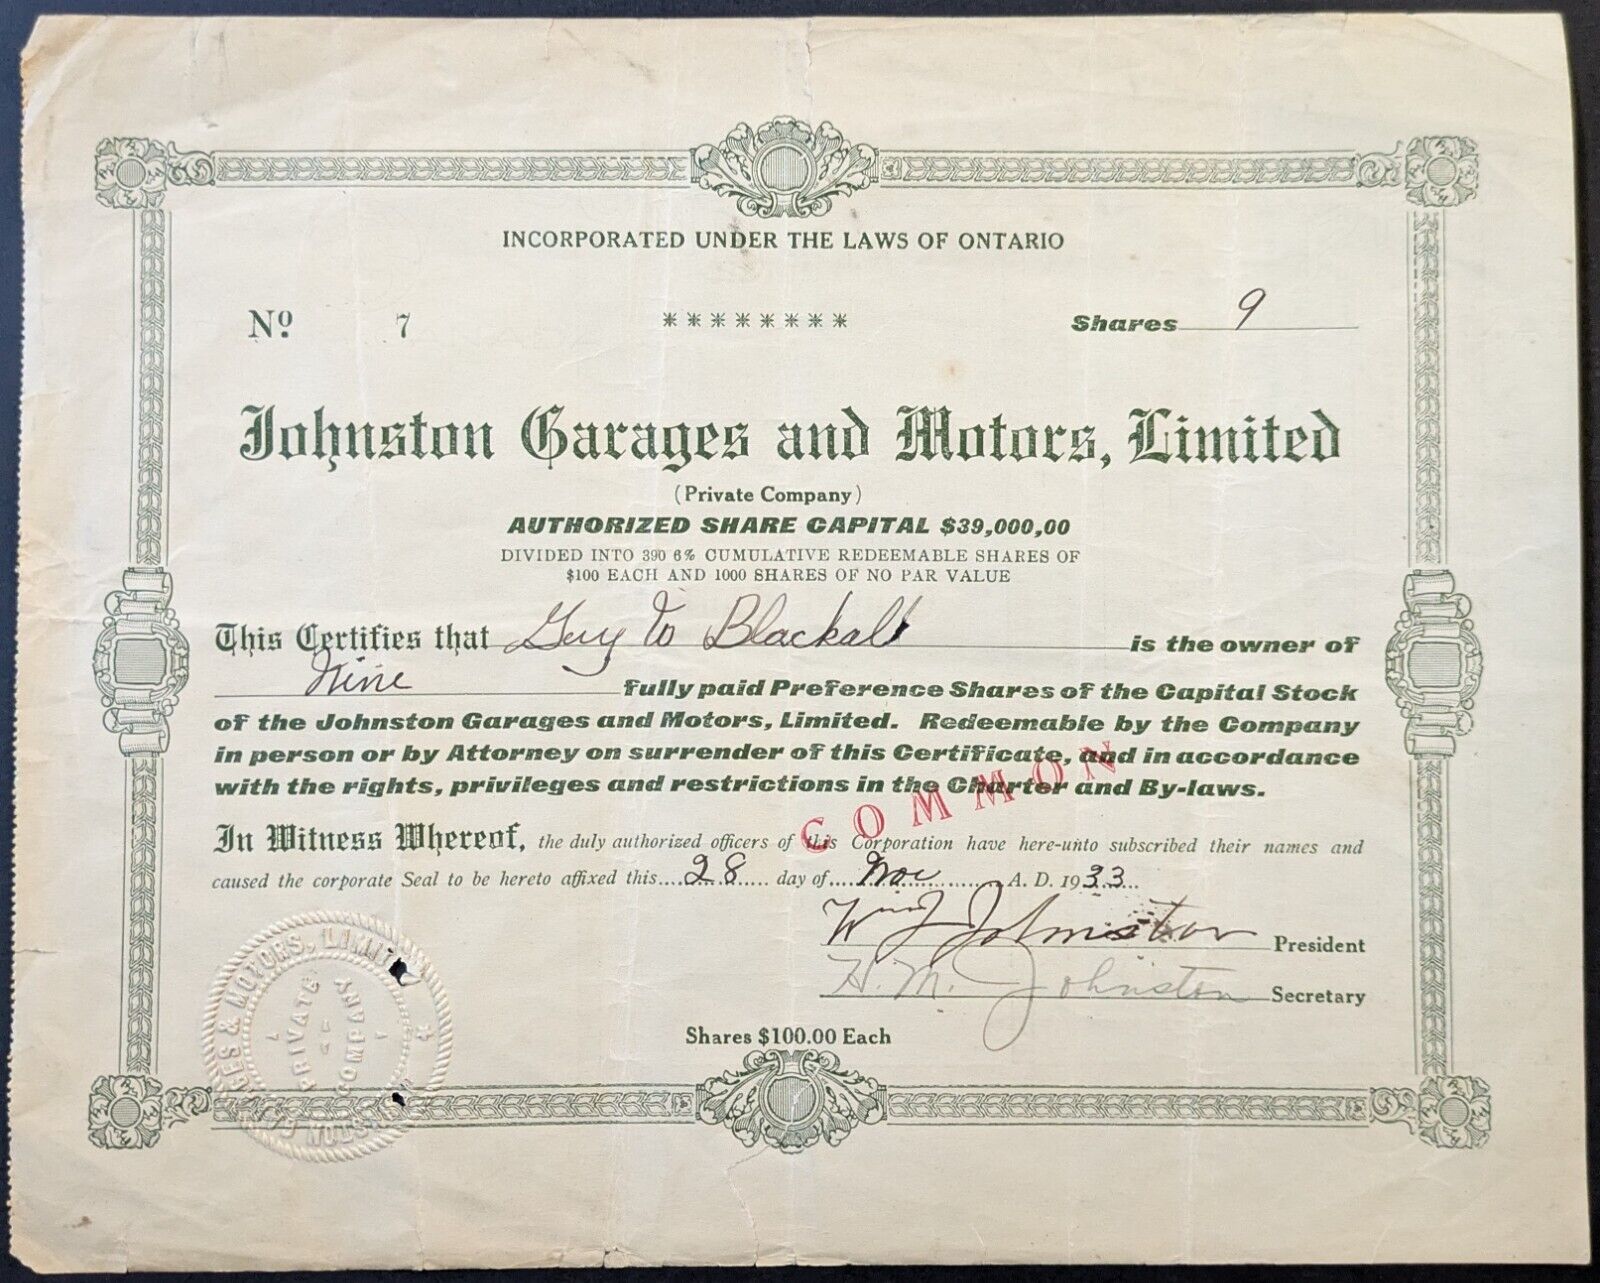 INCORPORATED UNDER THE LAWS OF ONTARIO
Nº 7 ******** Shares 9
Johnston Garages and Motors, Limited
(Private Company)
AUTHORIZED SHARE CAPITAL $39,000,00
DIVIDED INTO 390 6% CUMULATIVE REDEEMABLE SHARES OF
$100 EACH AND 1000 SHARES OF NO PAR VALUE
This Certifies that Guy Blackall is the owner of
Nine fully paid Preference Shares of the Capital Stock
of the Johnston Garages and Motors, Limited. Redeemable by the Company
in person or by Attorney on surrender of this Certificate, and in accordance
with the rights, privileges and restrictions in the Charter and By-laws.
COMMON
In Witness Whereof, the duly authorized officers of this Corporation have here-unto subscribed their names and
caused the corporate Seal to be hereto affixed this....28..... day of....Nov.......... A. D. 1933...
Wm J Johnston President
H. M. Johnston Secretary
Shares $100.00 Each
GES & MOTORS, LIMITED
PRIVATE COMPANY